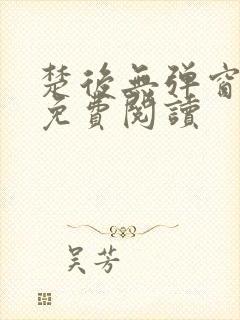 楚後無弹窗
免費閱讀
吴芳